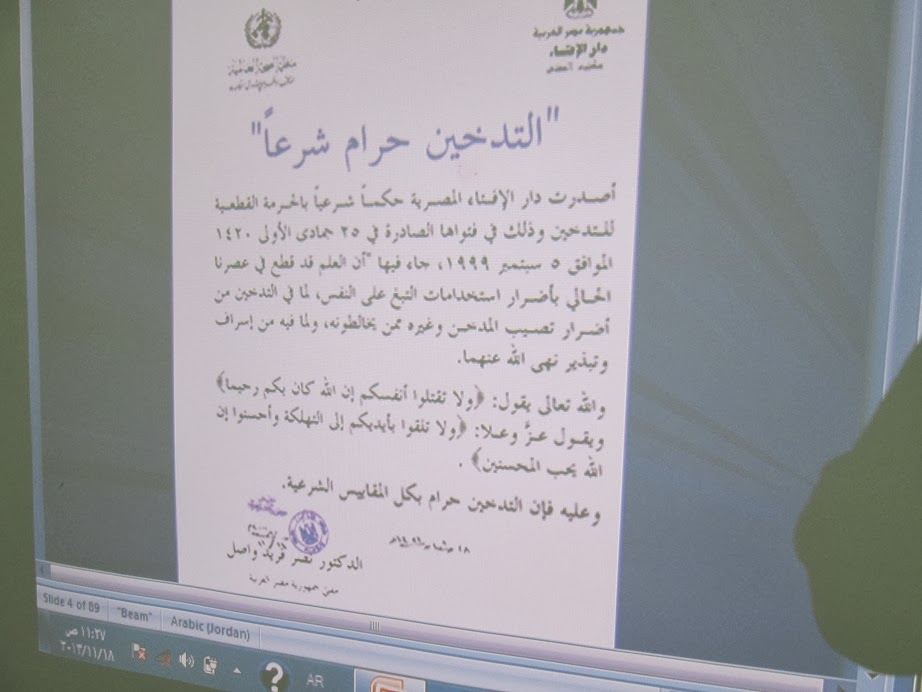 جمهورية مصر العربية
دار الإفتاء
منظمة الصحة العالمية
"التدخين حرام شرعاً"
أصدرت دار الإفتاء المصرية حكمـاً شـرعياً بالحرمة القطعية
للتدخين وذلك في فتواها الصادرة في ٢٥ جمادى الأولى ١٤٢٠
الموافق ٥ سبتمبر ١٩٩٩، جاء فيها "أن العلم قد قطع في عصرنا
الحالي بأضرار استخدامات التبغ على النفس، لما في التدخين من
أضـرار تصـيب المدخـن وغيره ممن يخالطونه، ولما فيه من إسراف
وتبذير نهى الله عنهما.
والله تعالى يقول: ﴿ولا تقتلوا أنفسكم إن الله كان بكم رحيما﴾
ويقـول عـزَّ وعـلا: ﴿ولا تلقوا بأيديكم إلى التهلكة وأحسنوا إن
الله يحب المحسنين﴾ .
وعليه فإن التدخين حرام بكل المقاييس الشرعية.
الدكتور نصر فريد واصل
مفتي جمهورية مصر العربية
Slide 4 of 89
"Beam"
Arabic (Jordan)
١١:٢٧ ص
٢٠١٣/١١/١٨
AR